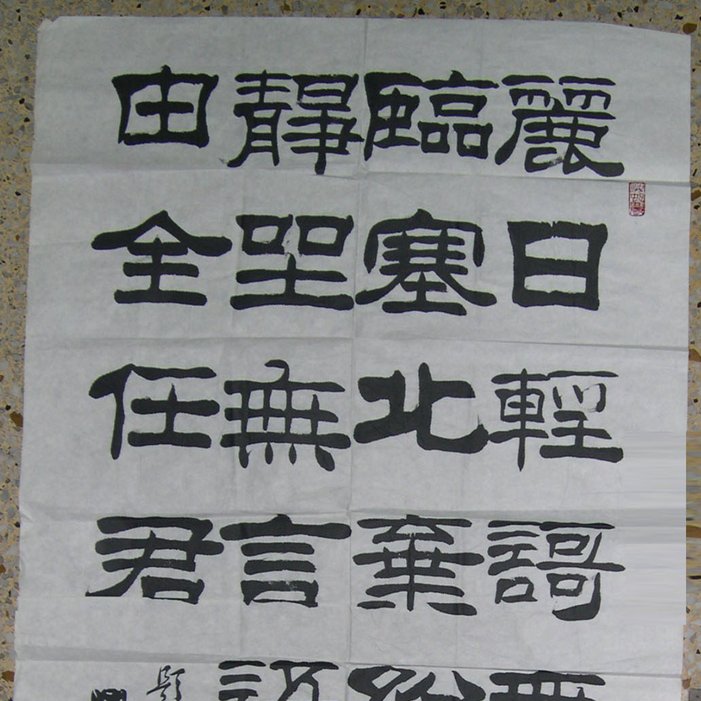 麗日輕謌
臨塞北棄
靜坐無言
由全任君
題